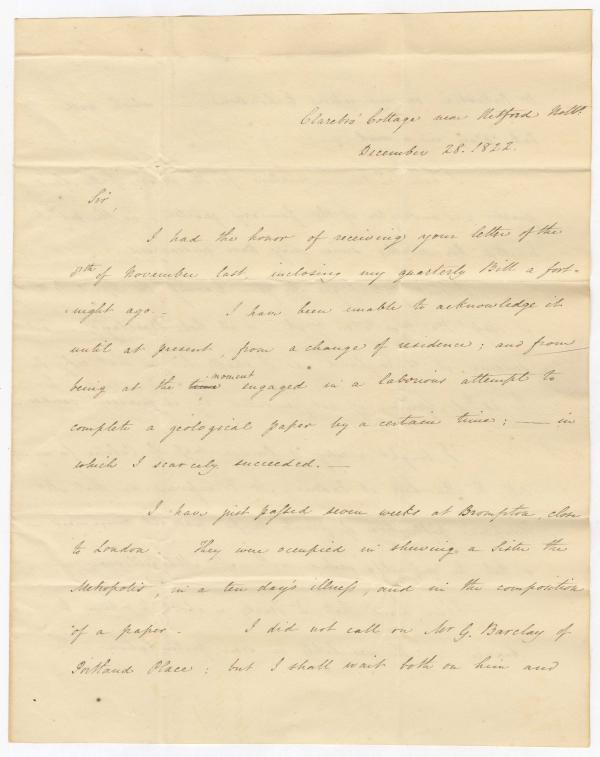 Clarebro' Cottage near Retford Notts.
December 28. 1822.
Sir,
I had the honor of receiving your letter of the
8th of November last, inclosing my quarterly Bill a fort-
night ago. - I have been unable to acknowledge it
until at present, from a change of residence; and from
being at the time moment engaged in a laborious attempt to
complete a geological paper by a certain time; — in
which I scarcely succeeded. —
I have just passed seven weeks at Brompton, close
to London. They were occupied in shewing a Sister the
Metropolis, in a ten day's illness, and in the composition
of a paper. - I did not call on Mr G. Barclay of
Portland Place; but I shall wait both on him and